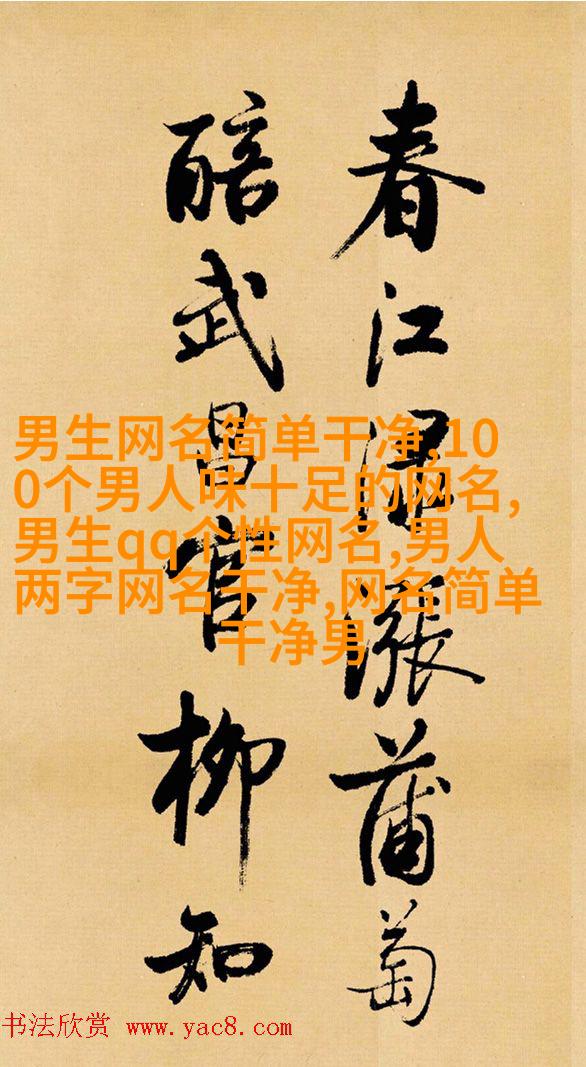 春江渌漲蒲萄
醅武昌官柳知
男生网名简单干净,10
0个男人味十足的网名,
男生qq个性网名,男人
两字网名干净,网名简单
干净男
书法欣赏 www.yac8.com